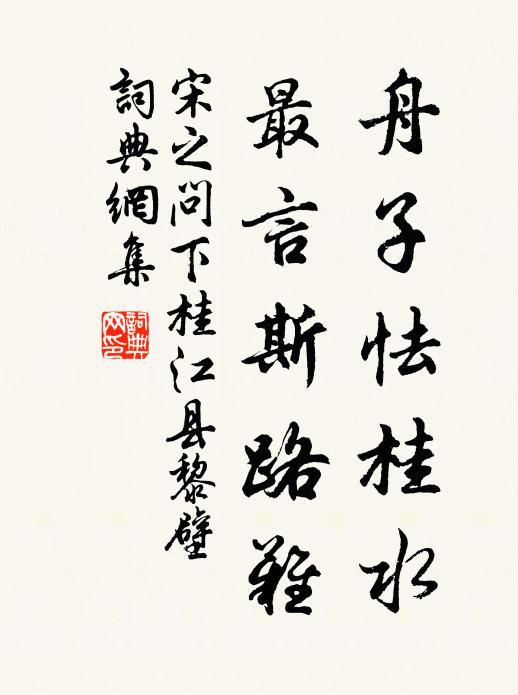 舟子怯桂水
最言斯路難
宋之问下桂江县黎壁
詞典網集
詞典網印